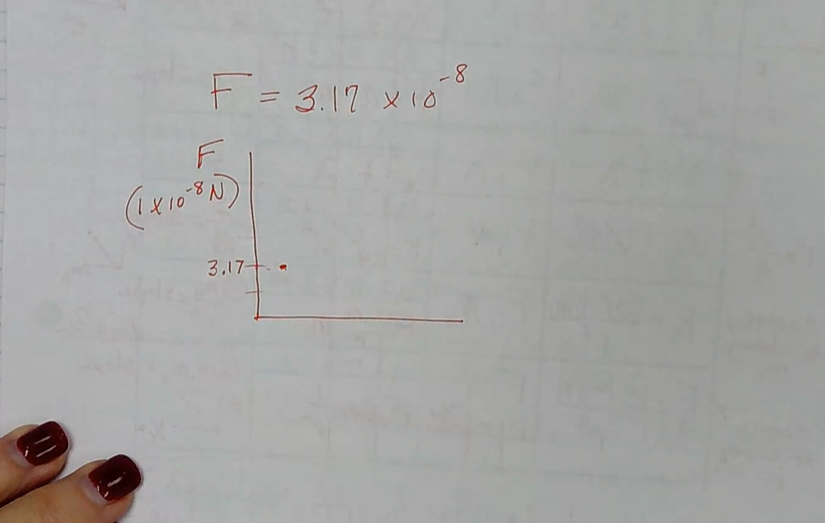 F = 3.17 x10⁻⁸
F
(1 x 10⁻⁸ N)
3.17